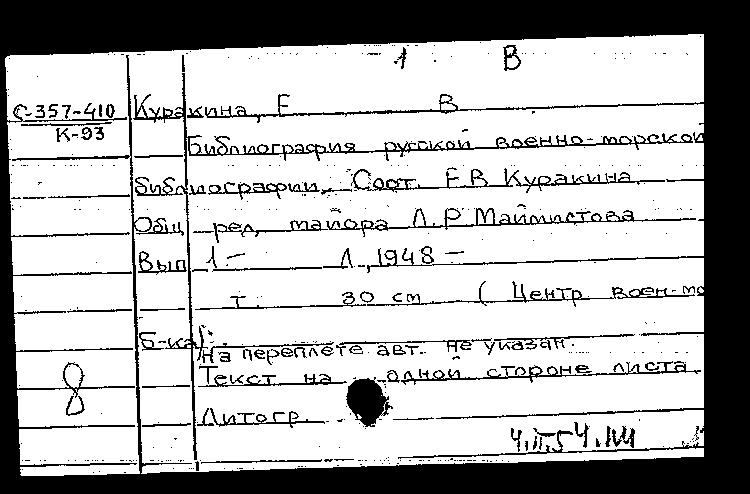 1 В
С-357-410
К-93
Куракина, Е В
Библиография русской военно-морской
библиографии. Сост. Е.В Куракина
Общ ред, майора Л.Р Маймистова
Вып 1 - Л, 1948 -
т. 30 cm ( Центр воен-мо
б-ка).
На переплете авт. не указан.
Текст на одной стороне листа.
Литогр.
8